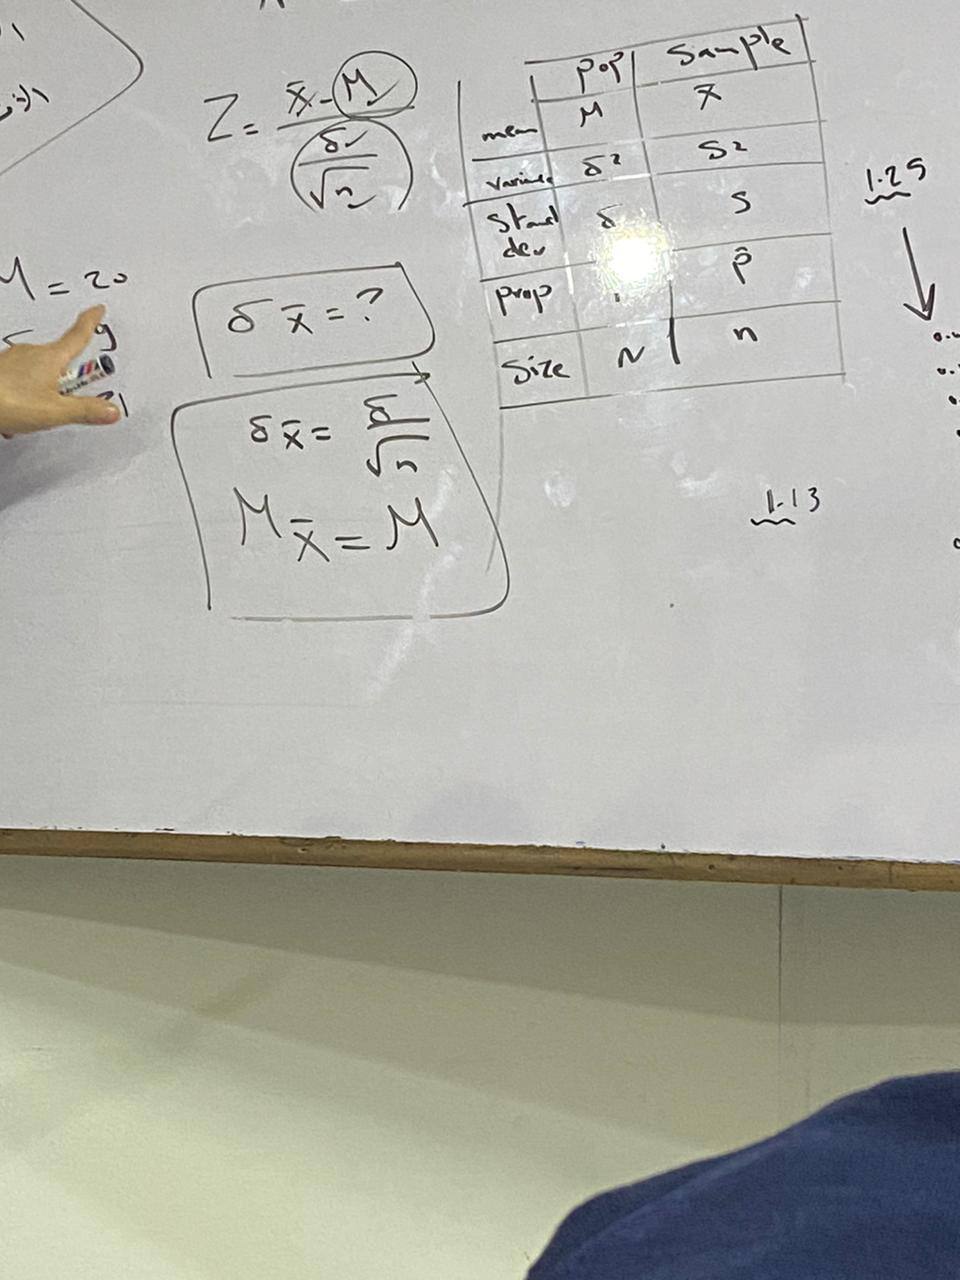 Z = x̄ - M / δ / √n
M = 20
9
δ x̄ = ?
δ x̄ = δ / √n
M x̄ = M
pop | Sample
mean | M | x̄
variance | δ² | S²
stand dev | δ | S
prop | p̂
Size | N | n
1.25
1.13